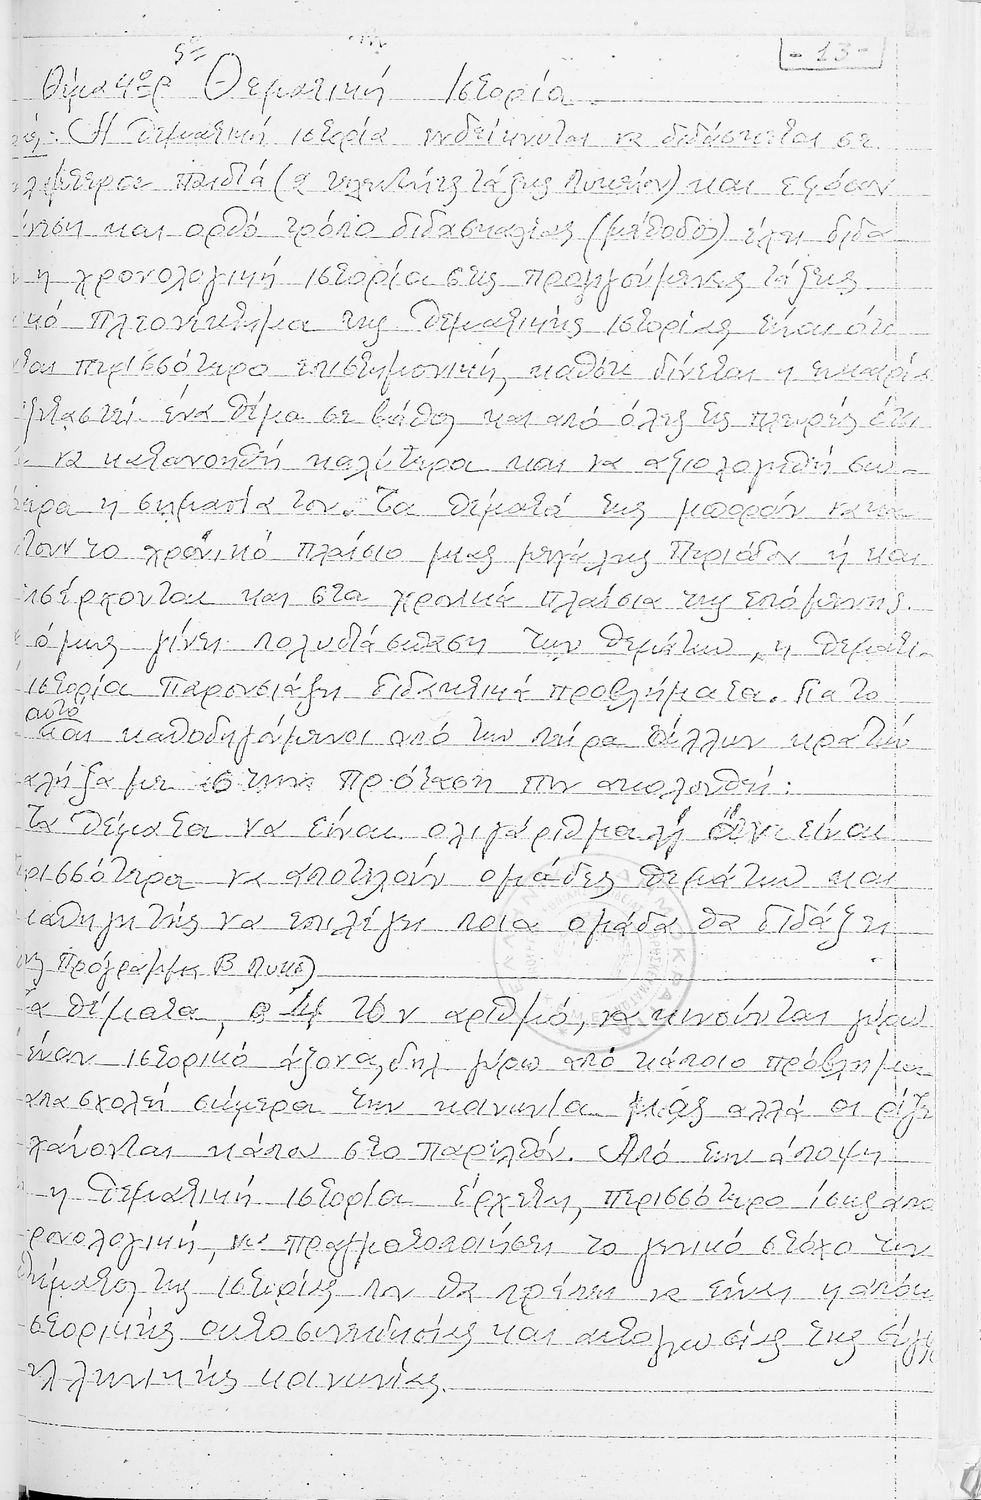 - 13 -
5ο
Θέμα 4ο Θεματική Ιστορία
Η θεματική ιστορία ενδείκνυται να διδάσκεται σε
παιδιά (2 τελευταίες τάξεις Λυκείου) και εφόσον
και ορθό τρόπο διδασκαλίας (μέθοδος) έχει διδα
η χρονολογική ιστορία στις προηγούμενες τάξεις.
κό πλεονέκτημα της θεματικής ιστορίας είναι ότι
ται περισσότερο επιστημονική, καθότι δίνεται η ευκαιρία
ξεταστεί ένα θέμα σε βάθος και από όλες τις πλευρές έτσι
να κατανοηθή καλύτερα και να αξιολογηθή σω-
η σημασία του. Τα θέματά της μπορούν να κα
το χρονικό πλαίσιο μιας μεγάλης περιόδου ή και
ισέρχονται και στα χρονικά πλαίσια της επόμενης.
όμως γίνει πολυδιάσπαση των θεμάτων, η θεματι-
ιστορία παρουσιάζει διδακτικά προβλήματα. Για το
αυτό
και καθοδηγούμενοι από την πείρα άλλων κρατών
αλήξαμε στην πρόταση που ακολουθεί:
Τα θέματα να είναι ολιγάριθμα ή αν είναι
ρισσότερα να αποτελούν ομάδες θεμάτων και
καθηγητής να επιλέγει ποια ομάδα θα διδάξει
πρόγραμμα Β Λυκ)
Τα θέματα, τον αριθμό, να κινούνται γύρω
έναν ιστορικό άξονα, δηλ γύρω από κάποιο πρόβλημα
απασχολεί σήμερα την κοινωνία μας αλλά οι ρίζε
χάνονται κάπου στο παρελθόν. Από την άποψη
η θεματική ιστορία έρχεται, περισσότερο ίσως απο
ρονολογική, να πραγματοποιήσει το γενικό στόχο του
θήματος της ιστορίας που θα πρέπει να είναι η απόκ
στορικής αυτοσυνειδησίας και αυτογνωσίας της σύγχ
ελληνικής κοινωνίας.